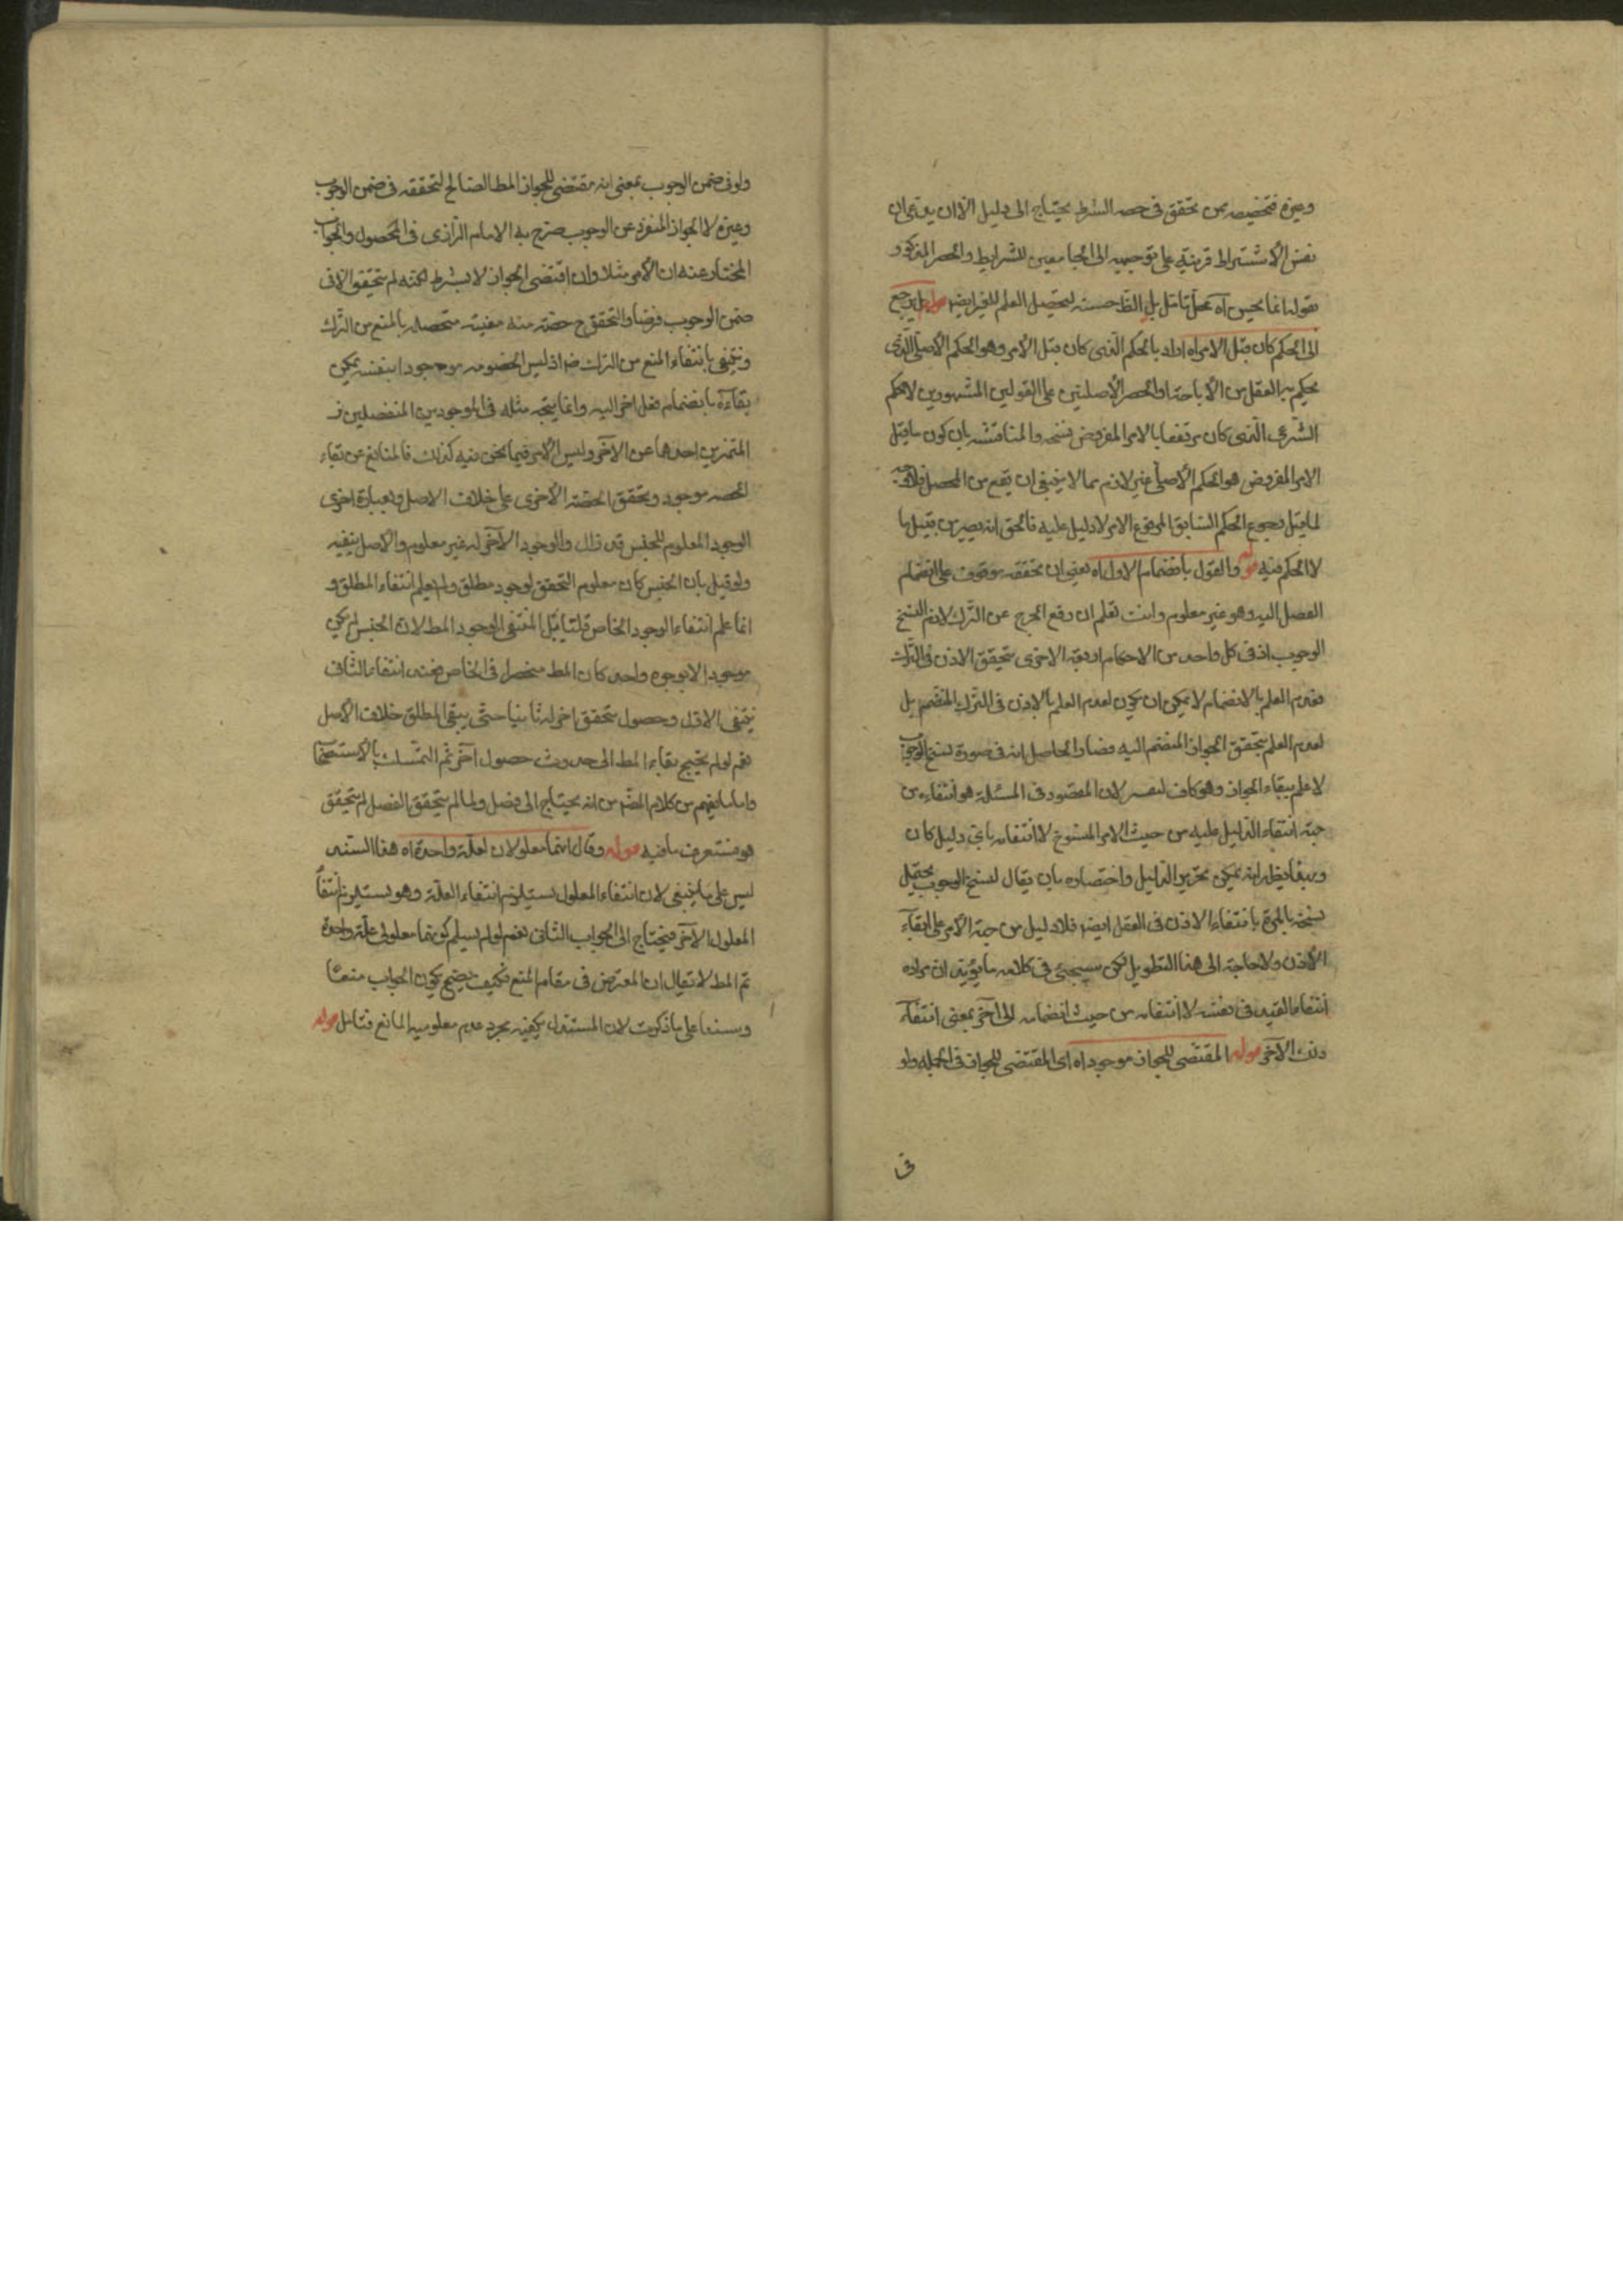 وغيره فتخصيصه بمن تحقق فى حصه الشرط يحتاج الى دليل الا ان يدعى ان
نفس الاشتراط قرينة على توجيهه الى الجامعين للشرايط والحصر المذكور
بقوله انما يحسن آه محل تامل بل الظ حسنه لتحصيل العلم للغير ايض قوله بل يرجع
الى الحكم كان قبل الامر اه اراد بالحكم الذى كان قبل الامر وهو الحكم الأصلى الذى
يحكم به العقل من الأباحة او الحصر الأصليتين على القولين المشهورين لا الحكم
الشرعى الذى كان مرتفعا بالامر المفروض نسخه والمناقشه بان كون ما قبل
الامر المفروض هو الحكم الأصلى غير لازم مما لا ينبغى ان يقع من المحصل
لما قيل رجوع الحكم السابق المرفوع الامر لا دليل عليه فالحق انه يصير من قبيل ما
لا حكم فيه قوله والقول بانضمام الاول اه يعنى ان تحققه موقوف على انضمام
الفصل اليه وهو غير معلوم وانت تعلم ان رفع الحرج عن الترك لازم لنسخ
الوجوب اذ فى كل واحد من الاحكام الاربعة الاخرى يتحقق الاذن فى الترك
فعدم العلم بالانضمام لا يمكن ان يكون لعدم العلم بالاذن فى الترك المنضم بل
لعدم العلم بتحقق الجواز المنضم اليه فصار الحاصل انه فى صورة نسخ الوجوب
لا علم ببقاء الجواز وهو كاف لنصر لان المقصود فى المسئلة هو انتفاءه من
جهة انتفاء الدليل عليه من حيث الامر المنسوخ لا انتفائه باى دليل كان
وبهذا يظهر انه يمكن تحرير الدليل واختصاره بان يقال لنسخ الوجوب يحتمل
نسخه بالمرة بانتفاء الاذن فى الفعل ايض فلا دليل من جهة الأمر على ابقاء
الأذن ولا حاجة الى هذا التطويل لكن سيجئ فى كلامه ما يؤيد ان مراده
انتفاء القيد فى نفسه لا انتفائه من حيث انضمامه الى اخر بمعنى انتفاء
ذلك الآخر قوله المقتضى للجواز موجود اه اى المقتضى للجواز فى الجملة ولو
فى
ولو فى ضمن الوجوب بمعنى انه مقتضى للجواز المط الصالح لتحققه فى ضمن الوجوب
وغيره لا الجواز المنفرد عن الوجوب صرح به الامام الرازى فى المحصول والجواب
المختار عنه ان الأمر مثلا وان اقتضى الجواز لا بشرط لكنه لم يتحقق الا فى
ضمن الوجوب فرضا والتحقق ح حصة منه معينة متحصله بالمنع من الترك
وينتفى بانتفاء المنع من الترك ضر اذ ليس الخصومه موجودا بنفسه يمكن
بقاءه بانضمام فصل اخر اليه وانما يتجه مثله فى الموجودين المنفصلين
المتمزين احدهما عن الآخر وليس الأمر فيما نحن فيه كذلك فالمانع عن بقاء
الحصه موجود وتحقق الحصة الأخرى على خلاف الاصل وبعبارة اخرى
الوجود المعلوم للجنس قد زال والوجود الآخر له غير معلوم والأصل ينفيه
ولو قيل بان الجنس كان معلوم التحقق لوجود مطلق ولم يعلم انتفاء المطلق و
انما علم انتفاء الوجود الخاص قلنا بل المنتفى الوجود المط لان الجنس لم يكن
موجودا الا بوجود واحد كان المط منحصرا فى الخاص فعند انتفاء الثانى
ينتفى الاول وحصول تحقق اخر له ثانيا حتى يبقى المطلق خلاف الأصل
نعم لو لم يحتج بقاء المط الى حدوث حصول آخر تم التمسك بالاستصحاب
واما ما يفهم من كلام المص من انه يحتاج الى فصل ولما لم يتحقق الفصل لم يتحقق
هو فستعرف ما فيه قوله وقال انهما معلولان لعلة واحدة اه هذا السند
ليس على ما ينبغى لان انتفاء المعلول يستلزم انتفاء العلة وهو يستلزم انتفاء
المعلول الآخر فيحتاج الى الجواب الثانى نعم لو لم يسلم كونهما معلولى علة واحدة
تم المط لا تقال ان المعترض فى مقام المنع فكيف يصح يكون الجواب منعا
وسندا على ما ذكرت لان المستدل يكفيه مجرد عدم معلومية المانع فتامل قوله